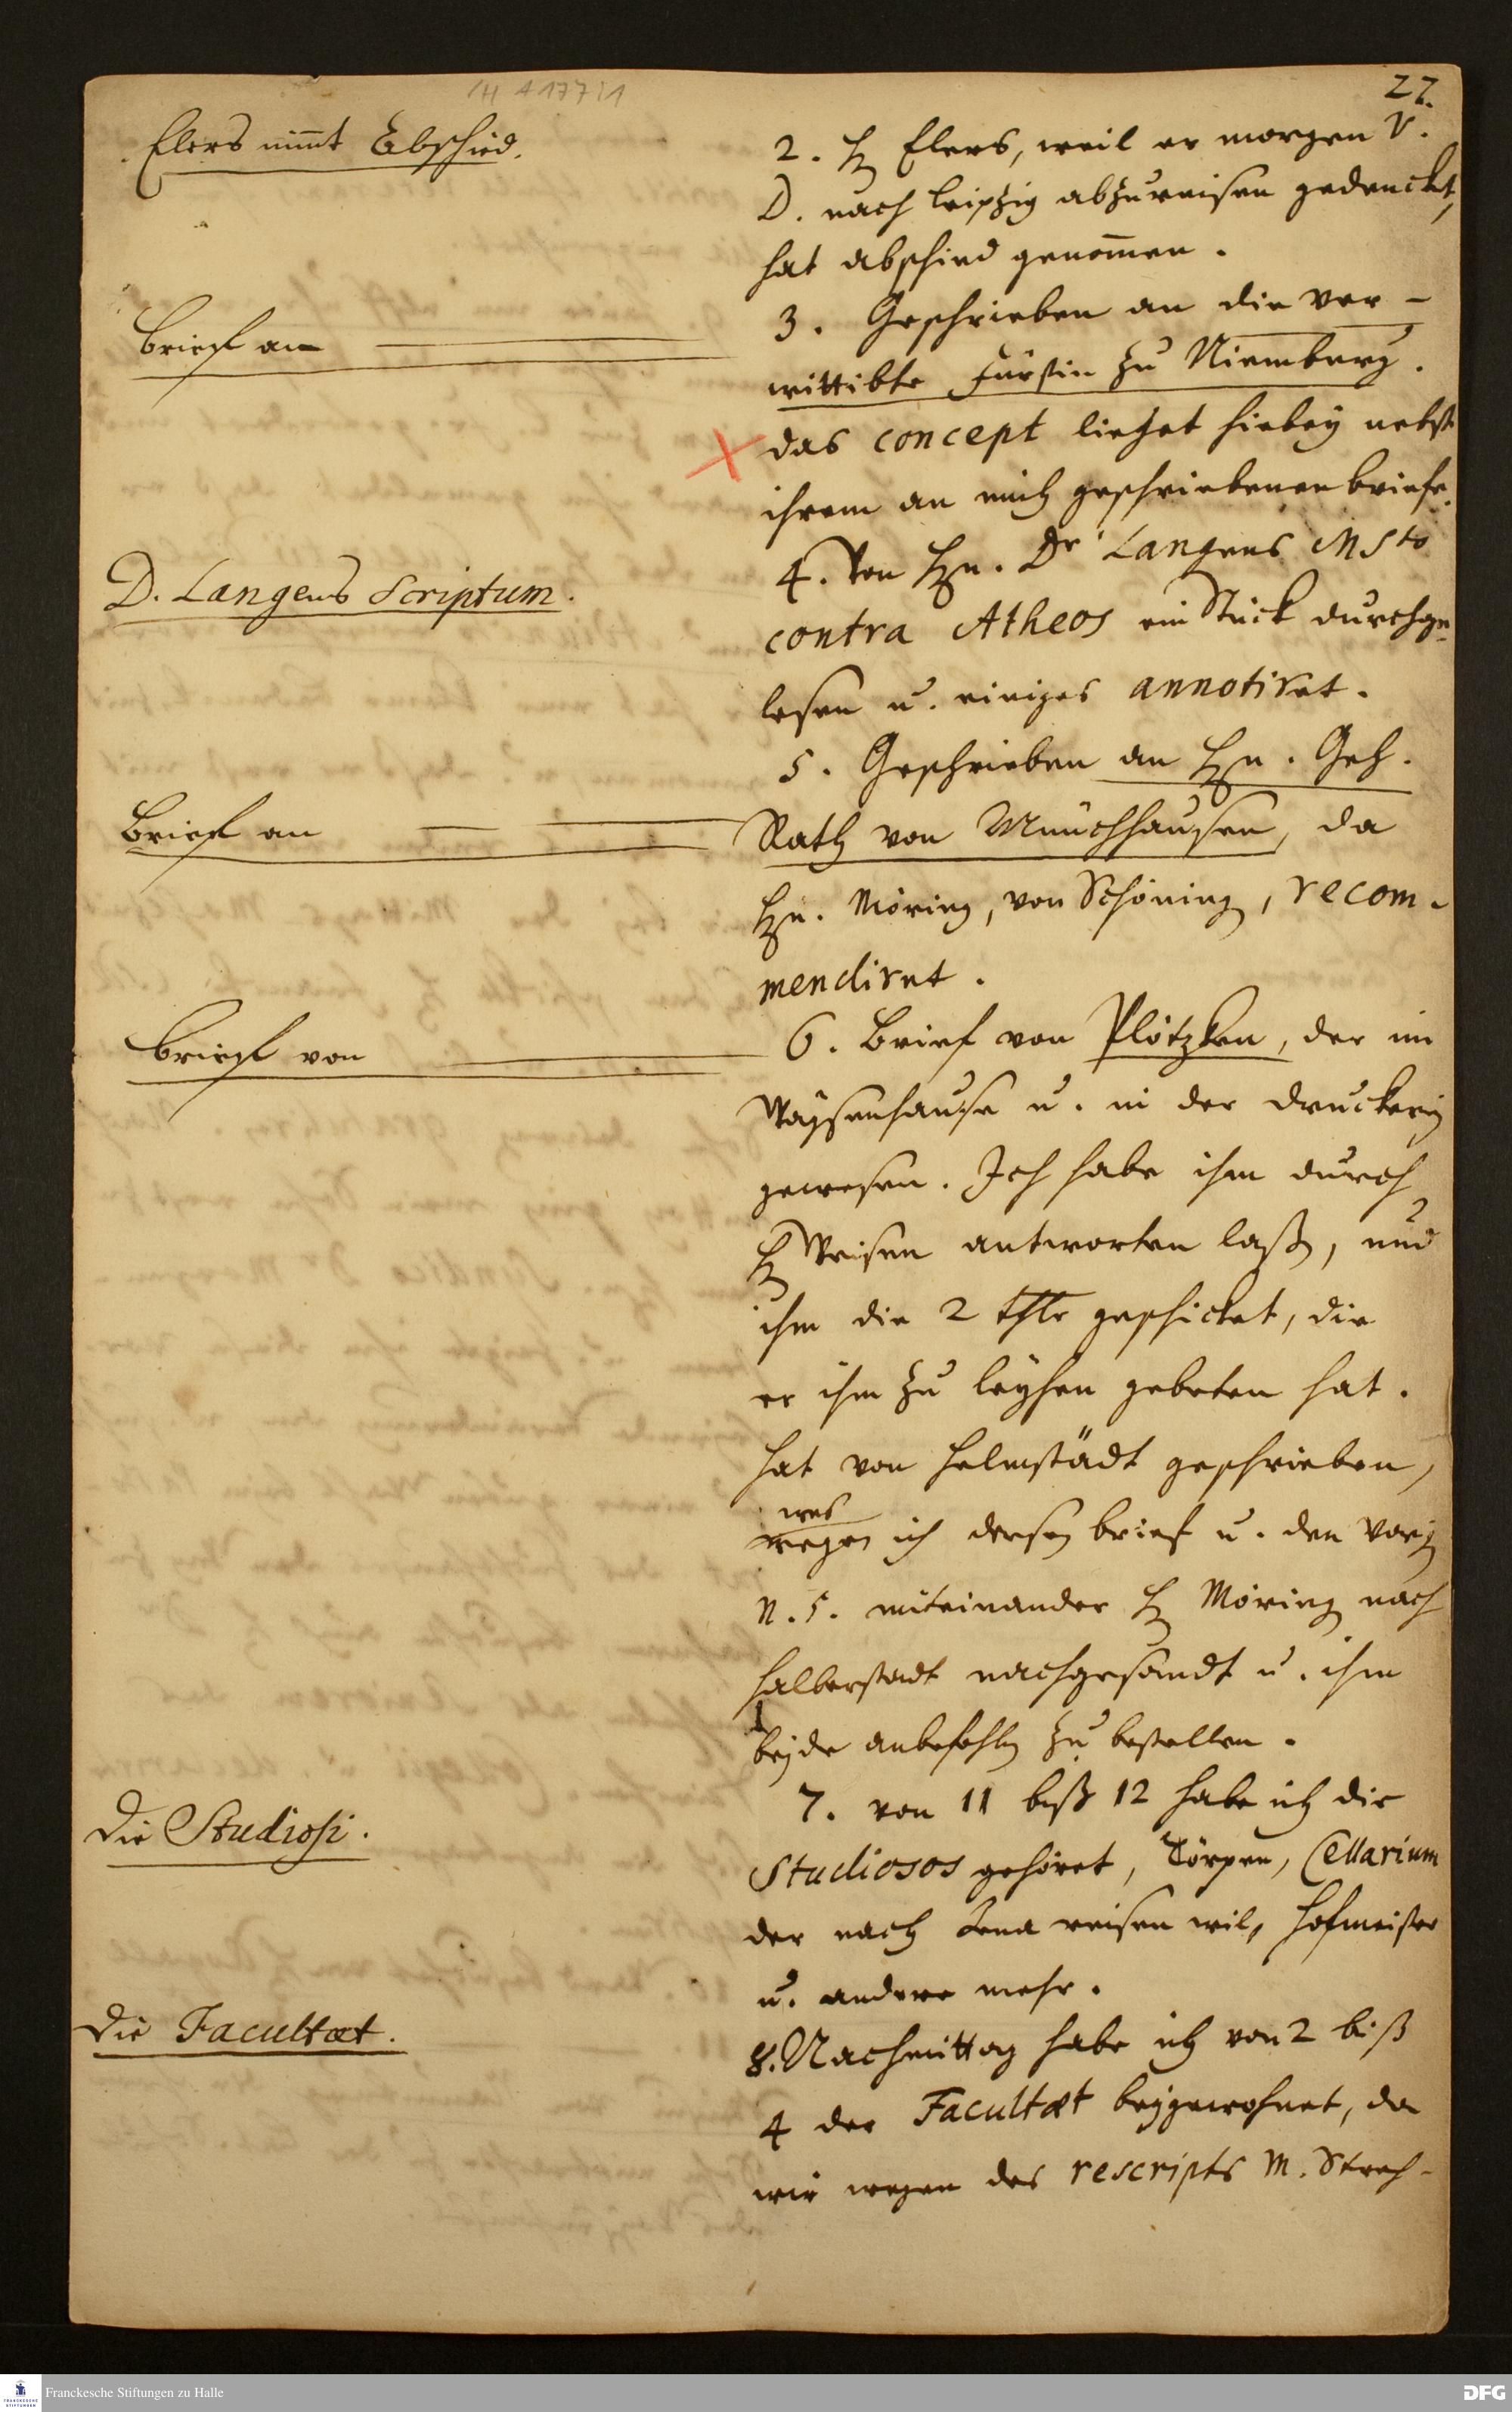 H A 177:1
22.
Elers nim̄t Abschied.
2. H Elers, weil er morgen V.
D. nach Leipzig abzureisen gedenckt,
hat abschied genom̄en.
Brief an
3. Geschrieben an die ver-
wittibte Fürstin zu Niemburg.
das concept lieget hiebey nebst
ihrem an mich geschriebenen briefe.
D. Langens Scriptum.
4. Von Hn. Dr Langens MSto
contra Atheos ein Stück durchge-
lesen u. einiges annotiret.
5. Geschrieben an Hn. Geh.
Brief an
Rath von Münchhausen, da
Hn. Möring, von Schöning, recom-
mendiret.
Brief von
6. Brief von Plötzken, der im
Waysenhause u. in der Druckerey
gewesen. Ich habe ihm durch
H Weisen antworten laß, und
ihm die 2 thlr geschicket, die
er ihm zu leyhen gebeten hat.
hat von Helmstädt geschrieben,
wes
wegen ich dessen brief u. den vorig
N. 5. miteinander H Möring nach
Halberstadt nachgesandt u. ihm
beyde anbefohlen zu bestellen.
Die Studiosi.
7. von 11 biß 12 habe ich die
Studiosos gehöret, Törpen, Cellarium
der nach Jena reisen wil, Hofmeister
u. andere mehr.
Die Facultæt.
8. Nachmittag habe ich von 2 biß
4 der Facultæt beygewohnet, da
wir wegen des rescripts M. Streh-
Franckesche Stiftungen zu Halle
DFG